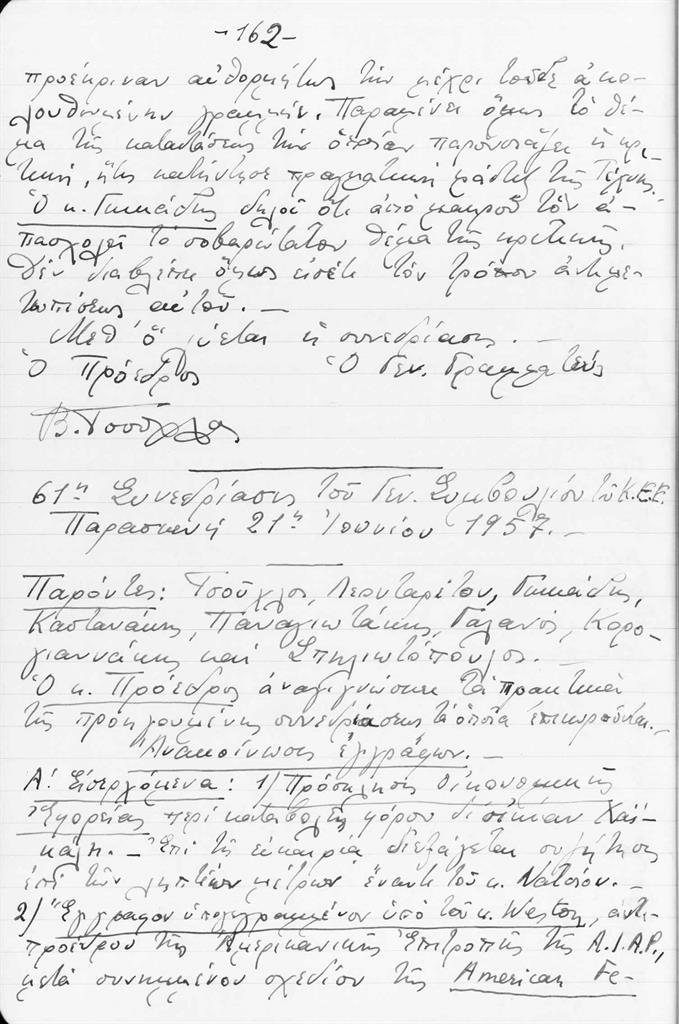 -162-
προέκριναν αὐθορμήτως τὴν μέχρι τοῦδε ἀκο-
λουθουμένην γραμμήν. Παραμένει ὅμως τὸ θέ-
μα τῆς καταστάσεως τὴν ὁποίαν παρουσιάζει ἡ κρι-
τική, ἥτις κατήντησε πραγματικὴ μάστιξ τῆς Τέχνης.
Ὁ κ. δηλοῖ ὅτι ἀπὸ μακροῦ τὸν ἀ-
πασχολεῖ τὸ σοβαρώτατον θέμα τῆς κριτικῆς.
Δὲν διαβλέπει ὅμως εἰσέτι τὸν τρόπον ἀντιμε-
τωπίσεως αὐτοῦ. —
Μεθ' ὃ λύεται ἡ συνεδρίασις. —
Ὁ Πρόεδρος Ὁ Γεν. Γραμματεὺς
Β. Τσούχλος
61η Συνεδρίασις τοῦ Γεν. Συμβουλίου τοῦ Κ.Ε.Ε.
Παρασκευὴ 21η Ἰουνίου 1957. —
Παρόντες: Τσούχλος, Λεονταρίτου,
Καστανάκης, Παναγιωτάκης, Γαλανός, Καρο-
γιαννάκης καὶ Σπηλιωτόπουλος. —
Ὁ κ. Πρόεδρος ἀναγιγνώσκει τὰ πρακτικὰ
τῆς προηγουμένης συνεδριάσεως τὰ ὁποῖα ἐπικυροῦνται. —
Ἀνακοίνωσις ἐγγράφων. —
Α'. Εἰσερχόμενα: 1) Πρόσκλησις Οἰκονομικῆς
Ἐφορείας περὶ καταβολῆς φόρου δι' οἰκίαν Χαϊ-
κάλη. — Ἐπὶ τῇ εὐκαιρίᾳ διεξάγεται συζήτησις
ἐπὶ τῶν ληπτέων μέτρων ἔναντι τοῦ κ. Νάτσιου. —
2) Ἔγγραφον ὑπογεγραμμένον ὑπὸ τοῦ κ. Weston, ἀντι-
προέδρου τῆς Ἀμερικανικῆς Ἐπιτροπῆς τῆς A.I.A.P.,
μετὰ συνημμένου σχεδίου τῆς American Fe-